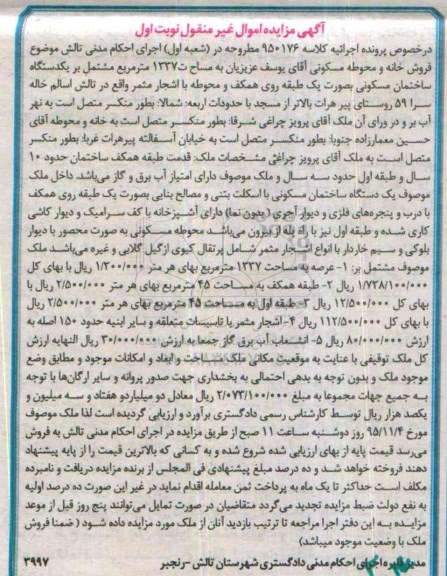 آگهی مزایده اموال غیر منقول نوبت اول
درخصوص پرونده اجرائیه کلاسه ۹۵۰۱۷۶ مطروحه در (شعبه اول) اجرای احکام مدنی تالش موضوع
فروش خانه و محوطه مسکونی آقای یوسف عزیزیان به مساحت ۱۳۳۷ مترمربع مشتمل بر یکدستگاه
ساختمان مسکونی بصورت یک طبقه روی همکف و محوطه با اشجار مثمر واقع در تالش اسالم خاله
سرا ۵۹ روستای پیر هرات بالاتر از مسجد با حدودات اربعه: شمالا: بطور منکسر متصل است به نهر
آب بر و در ورای آن ملک آقای پرویز چراغی شرقا: بطور منکسر متصل است به خانه و محوطه آقای
حسین معمارزاده جنوبا: بطور منکسر متصل است به خیابان آسفالته پیرهرات غربا: بطور منکسر
متصل است به ملک آقای پرویز چراغی مشخصات ملک: قدمت طبقه همکف ساختمان حدود ۱۰
سال و طبقه اول حدود سه سال و ملک موصوف دارای امتیاز آب برق و گاز می‌باشد. داخل ملک
موصوف یک دستگاه ساختمان مسکونی با اسکلت بتنی و مصالح بنایی بصورت یک طبقه روی همکف
با درب و پنجره‌های فلزی و دیوار آجری (بدون نما) دارای آشپزخانه با کف سرامیک و دیوار کاشی
کاری شده و طبقه اول نیز با راه پله از بیرون می‌باشد محوطه مسکونی به صورت محصور با دیوار
بلوکی و سیم خاردار با انواع اشجار مثمر شامل پرتقال کیوی ازگیل گلابی و غیره می‌باشد ملک
موصوف مشتمل بر: ۱- عرصه به مساحت ۱۳۳۷ مترمربع بهای هر متر ۱/۳۰۰/۰۰۰ ریال با بهای کل
۱/۷۳۸/۱۰۰/۰۰۰ ریال ۲- طبقه همکف به مساحت ۴۵ مترمربع بهای هر متر ۲/۵۰۰/۰۰۰ ریال با
بهای کل ۱۲/۵۰۰/۰۰۰ ریال ۳- طبقه اول به مساحت ۴۵ مترمربع بهای هر متر ۲/۵۰۰/۰۰۰ ریال
با بهای کل ۱۱۲/۵۰۰/۰۰۰ ریال ۴- اشجار مثمر با تاسیسات متعلقه و سایر ابنیه حدود ۱۵۰ اصله به
ارزش ۸۰/۰۰۰/۰۰۰ ریال ۵- انشعاب آب برق گاز جمعا به ارزش ۳۰/۰۰۰/۰۰۰ ریال النهایه ارزش
کل ملک توقیفی با عنایت به موقعیت مکانی ملک مساحت و ابعاد و امکانات موجود و مطابق وضع
موجود ملک و بدون توجه به بدهی احتمالی به بخشداری جهت صدور پروانه و سایر ارگان‌ها با توجه
به جمیع جهات مجموعا به مبلغ ۲/۰۷۳/۱۰۰/۰۰۰ ریال معادل دو میلیاردو هفتاد و سه میلیون و
یکصد هزار ریال توسط کارشناس رسمی دادگستری برآورد و ارزیابی گردیده است لذا ملک موصوف
مورخ ۹۵/۱۱/۴ روز دوشنبه ساعت ۱۱ صبح از طریق مزایده در اجرای احکام مدنی تالش به فروش
می‌رسد قیمت پایه از بهای ارزیابی شده شروع شده و به کسانی که بالاترین قیمت را از پایه پیشنهاد
دهند فروخته خواهد شد و ده درصد مبلغ پیشنهادی فی المجلس از برنده مزایده دریافت و نامبرده
مکلف است حداکثر تا یک ماه به پرداخت ثمن معامله اقدام نماید در غیر این صورت ده درصد اولیه
به نفع دولت ضبط مزایده تجدید می‌گردد متقاضیان در صورت تمایل می‌توانند پنج روز قبل از موعد
مزایده به این دفتر اجرا مراجعه تا ترتیب بازدید آنان از ملک مورد مزایده داده شود (ضمنا فروش
ملک با وضعیت موجود میباشد)
مدیر دایره اجرای احکام مدنی دادگستری شهرستان تالش - رنجبر ۳۹۹۷